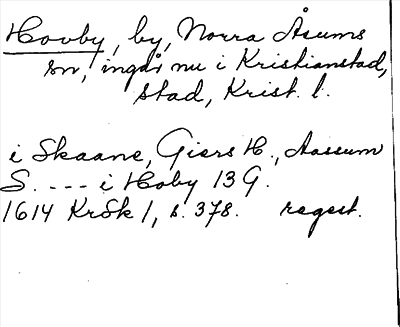 Hovby, by, Norra Åsums
sn, ingår nu i Kristianstad,
stad, Krist. l.
i Skaane, Giers H., Aassum
S. ---- i Hoby 13 G.
1614 KrSk 1, s. 378. regest.